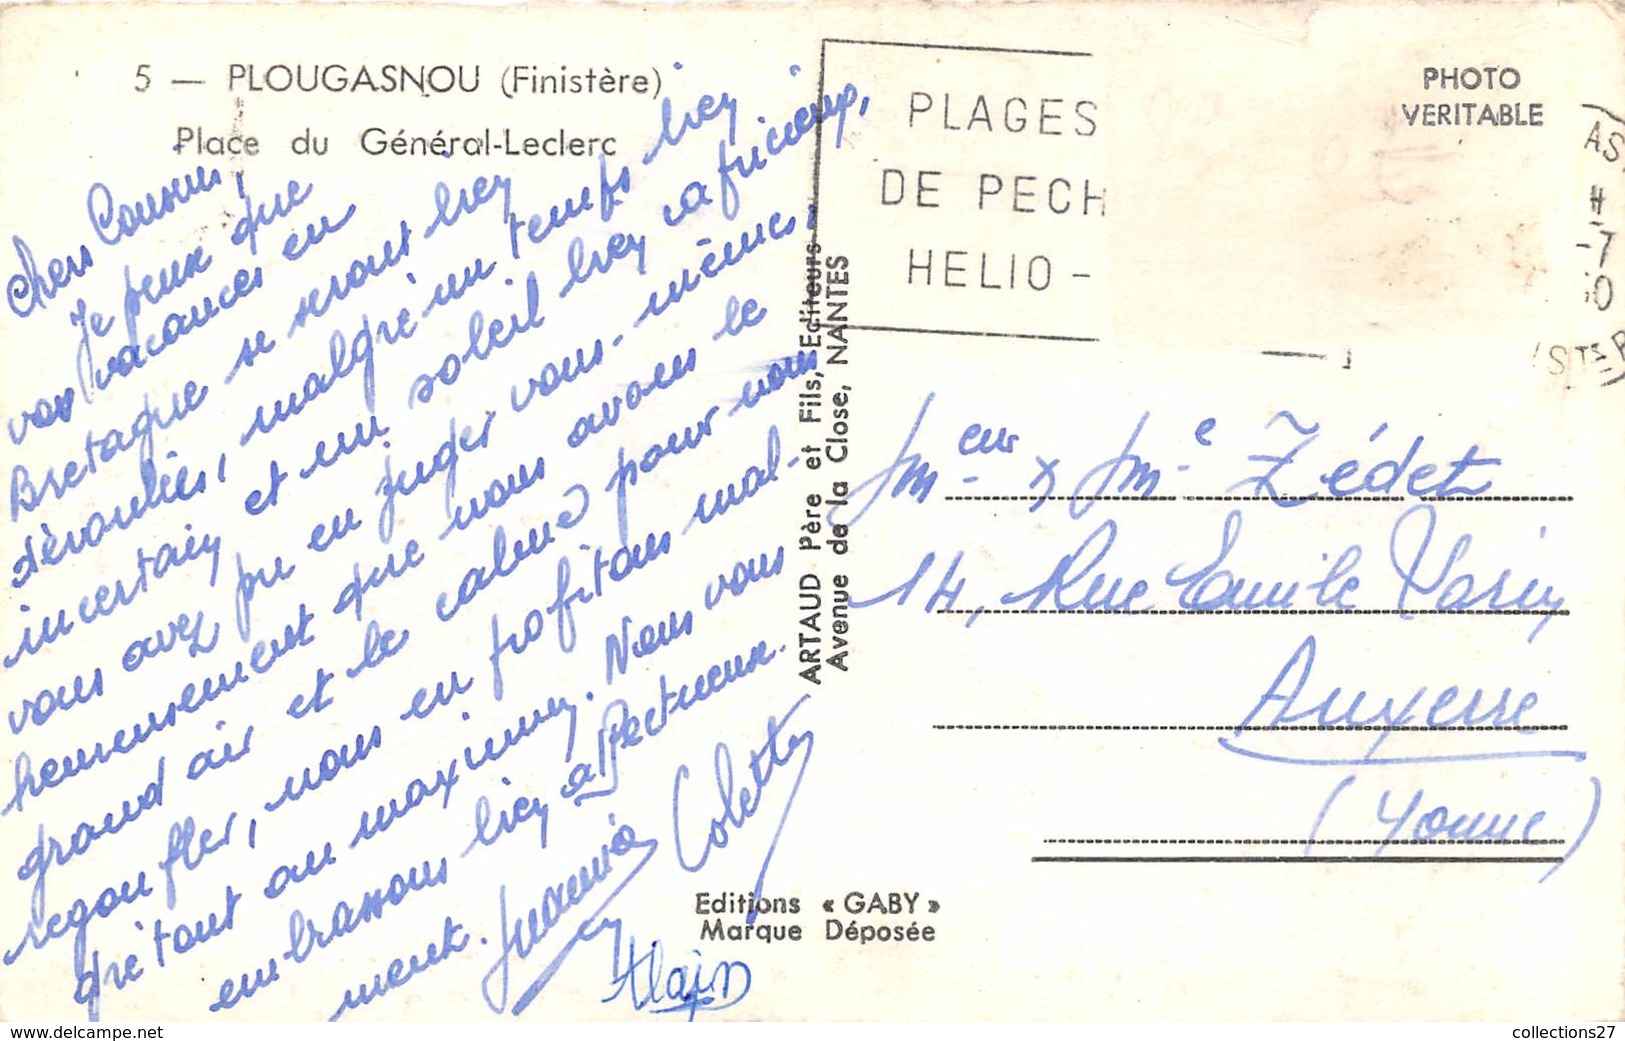 5 — PLOUGASNOU (Finistère)
Place du Général-Leclerc
Chers Cousins,
Je peux que
vos vacances en
Bretagne se seront bien
déroulées, malgré un temps bien
incertain et un soleil bien capricieux,
vous avez pu en juger vous-mêmes.
heureusement que nous avons le
grand air et le calme pour nous
regonfler, nous en profitons mal-
gré tout au maximum. Nous vous
embrassons bien affectueuse-
ment.
Colette
Alain
PLAGES
DE PECH
HELIO -
PHOTO
VERITABLE
ARTAUD Père et Fils, Editeurs
Avenue de la Close, NANTES
Mr & Mme Zédet
14, Rue Emile Vasin
Auxerre
(Yonne)
Editions « GABY »
Marque Déposée
collections27